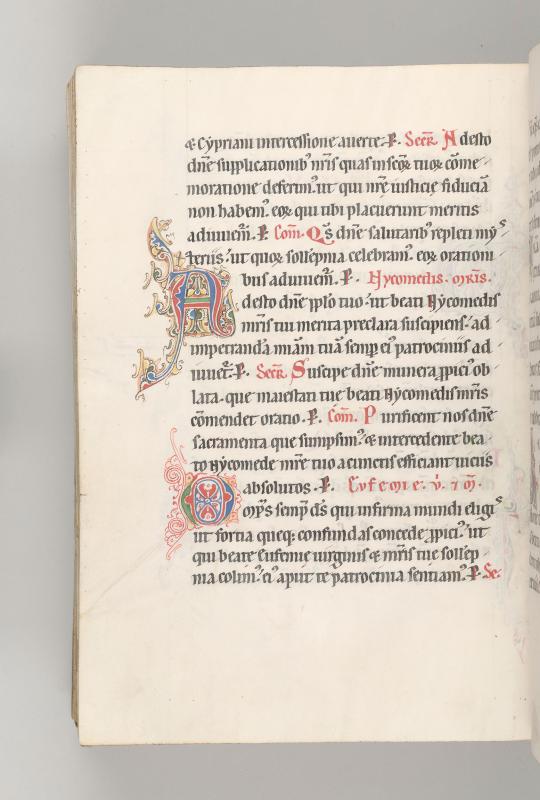 & Cypriani intercessione auerte. P. Secr̄. Adesto
dn̄e supplicationib' nr̄is quas in scōꝝ tuoꝝ cōme
moratione deferim'. ut qui nr̄e iusticie fiduciā
non habem'. eoꝝ qui tibi placuerunt meritis
adiuuem̄. P. Com̄. Qs dn̄e salutarib' repleti mys
teriis. ut quoꝝ sollēpnia celebram'. eoꝝ orationi
bus adiuuem̄. P. Nycomedis. mr̄is.
Adesto dn̄e pplo tuo. ut beati Nycomedis
mr̄is tui merita preclara suscipiens. ad
impetrandā mīam tuā semp ei' patrociniis ad
iuuet̄. P. Secr̄. Suscipe dn̄e munera ppici' ob
lata. que maiestati tue beati Nycomedis mr̄is
cōmendet oratio. P. Com̄. Purificent nos dn̄e
sacramenta que sumpsim'. & intercedente bea
to Nycomede mr̄e tuo a cunctis efficiant uiciis
absolutos. P. Eufemie. v. & m̄.
Omps semp ds̄ qui infirma mundi eligis
ut fortia queq; confundas concede ppici'. ut
qui beate Eufemie uirginis & mr̄is tue sollēp
nia colim'. ei' aput te patrocinia sentiam'. P. Se.